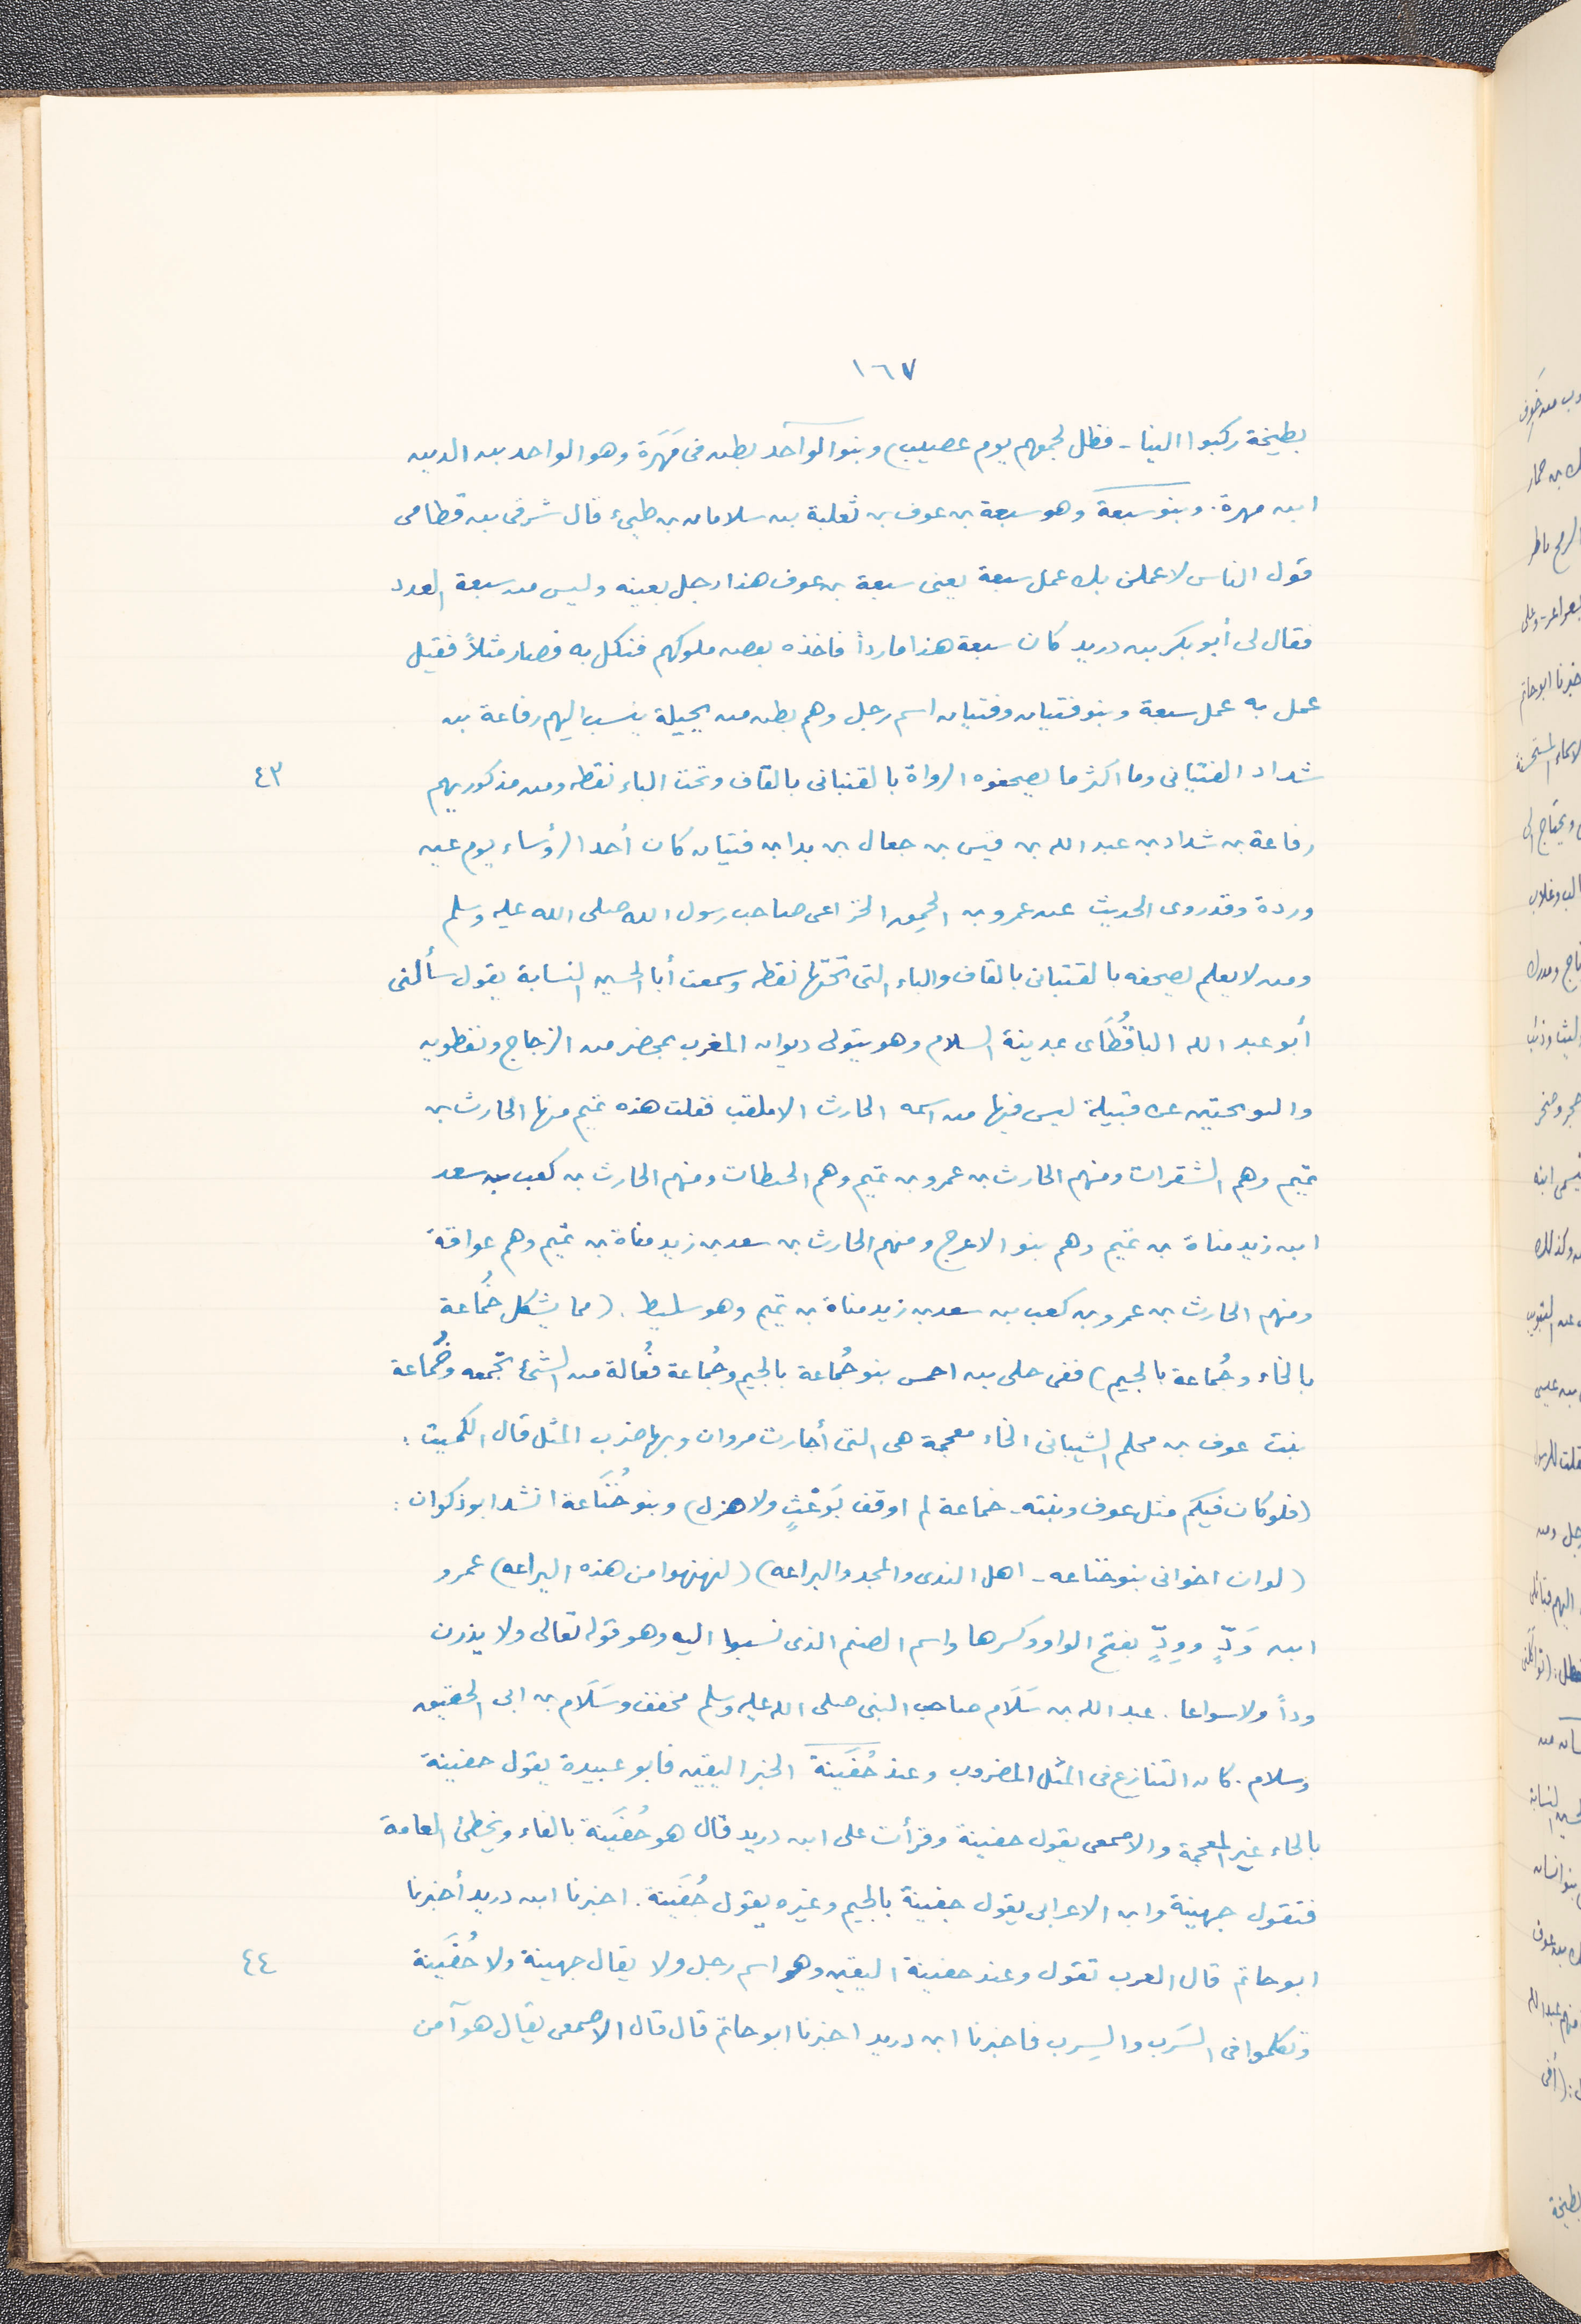 ١٦٧
بطيخة ركبوا الينا - فظل لجمعهم يوم عصيب) وبنو الوآحد بطن فى مَهَرَة وهو الواحد بن الدين
ابن مهرة. وبنو سبعة وهو سبعة بن عوف بن ثعلبة بن سلامان بن طيىء قال شرقى بن قطامى
قول الناس لاعملن بك عمل سبعة يعنى سبعة بن عوف هذا رجل بعينه وليس من سبعة العدد
فقال لى أبو بكر بن دريد كان سبعة هذا ماردا فاخذه بعض ملوكهم فنكل به فصار مثلاً فقيل
عمل به عمل سبعة وبنو فتيان وفتيان اسم رجل وهم بطن من بجيلة ينسب اليهم رفاعة بن
شداد الفتيانى وما اكثر ما يصحفوه الرواة بالقتبانى بالقاف وتحت الباء نقطه ومن مذكوريهم
٤٣
رفاعة بن شداد بن عبد الله بن قيس بن جعال بن بدا بن فتيان كان أحد الرؤساء يوم عين
وردة وقد روى الحديث عن عمرو بن الحمِق الخزاعى صاحب رسول الله صلى الله عليه وسلم
ومن لا يعلم يصحفه بالقتبانى بالقاف والباء التى تحتها نقطه وسمعت أبا الحسين النسابة يقول سألنى
أبو عبد الله الباقُطَاى بمدينة السلام وهو يتولى ديوان المغرب بمحضر من الزجاج ونفطويه
والنوبختين عن قبيلة ليس فيها من اسمه الحارث الا ملقب فقلت هذه تميم منها الحارث بن
تميم وهم الشقرات ومنهم الحارث بن عمرو بن تميم وهم الحبطات ومنهم الحارث بن كعب بن سعد
ابن زيد مناة بن تميم وهم بنو الاعرج ومنهم الحارث بن سعد بن زيد مناة بن تميم وهم عوافة
ومنهم الحارث بن عمرو بن كعب بن سعد بن زيد مناة بن تميم وهو سليط. (مما يشكل خُماعة
بالخاء وجُماعة بالجيم) ففى حلى بن احمس بنو جُماعة بالجيم وجُماعة فُعالة من الشئ تجمعه وخُماعة
بنت عوف بن محلم الشيبانى الخاء معجمة هى التى أجارت مروان وبها ضرب المثل قال الكميت :
(فلو كان فيكم مثل عوف وبنته - خماعة لم اوقف بَوَعْثٍ ولا هزل) وبنو خُنَاعة انشد ابو ذكوان :
(لو ان اخوانى بنو خناعه - اهل الندى والمجد والبراعه) (لنهنهوا من هذه اليراعه) عمرو
ابن وَدّ ووِدّ بفتح الواو وكسرها واسم الصنم الذى نسبوا اليه وهو قوله تعالى ولا يذرن
وداً ولا سواعا. عبد الله بن سَلَام صاحب النبى صلى الله عليه وسلم مخفف وسَلَام بن ابى الحقيق
وسلام. كان التنازع فى المثل المضروب وعند حُفَينة الخبر اليقين فابو عبيدة يقول حفينة
بالحاء غير المعجمة والاصمعى يقول حفينة وقرأت على ابن دريد قال هو حُفَينة بالفاء ويخطئ العامة
فتقول جهينة وابن الاعرابى يقول جفينة بالجيم وغيره يقول جُفَينة. اخبرنا ابن دريد أخبرنا
ابو حاتم قال العرب تقول وعند حفينة اليقين وهو اسم رجل ولا يقال جهينة ولا حُفَينة
٤٤
وتكلموا فى السَرب والسِرب فاخبرنا ابن دريد اخبرنا ابو حاتم قال قال الاصمعى يقال هو آمن